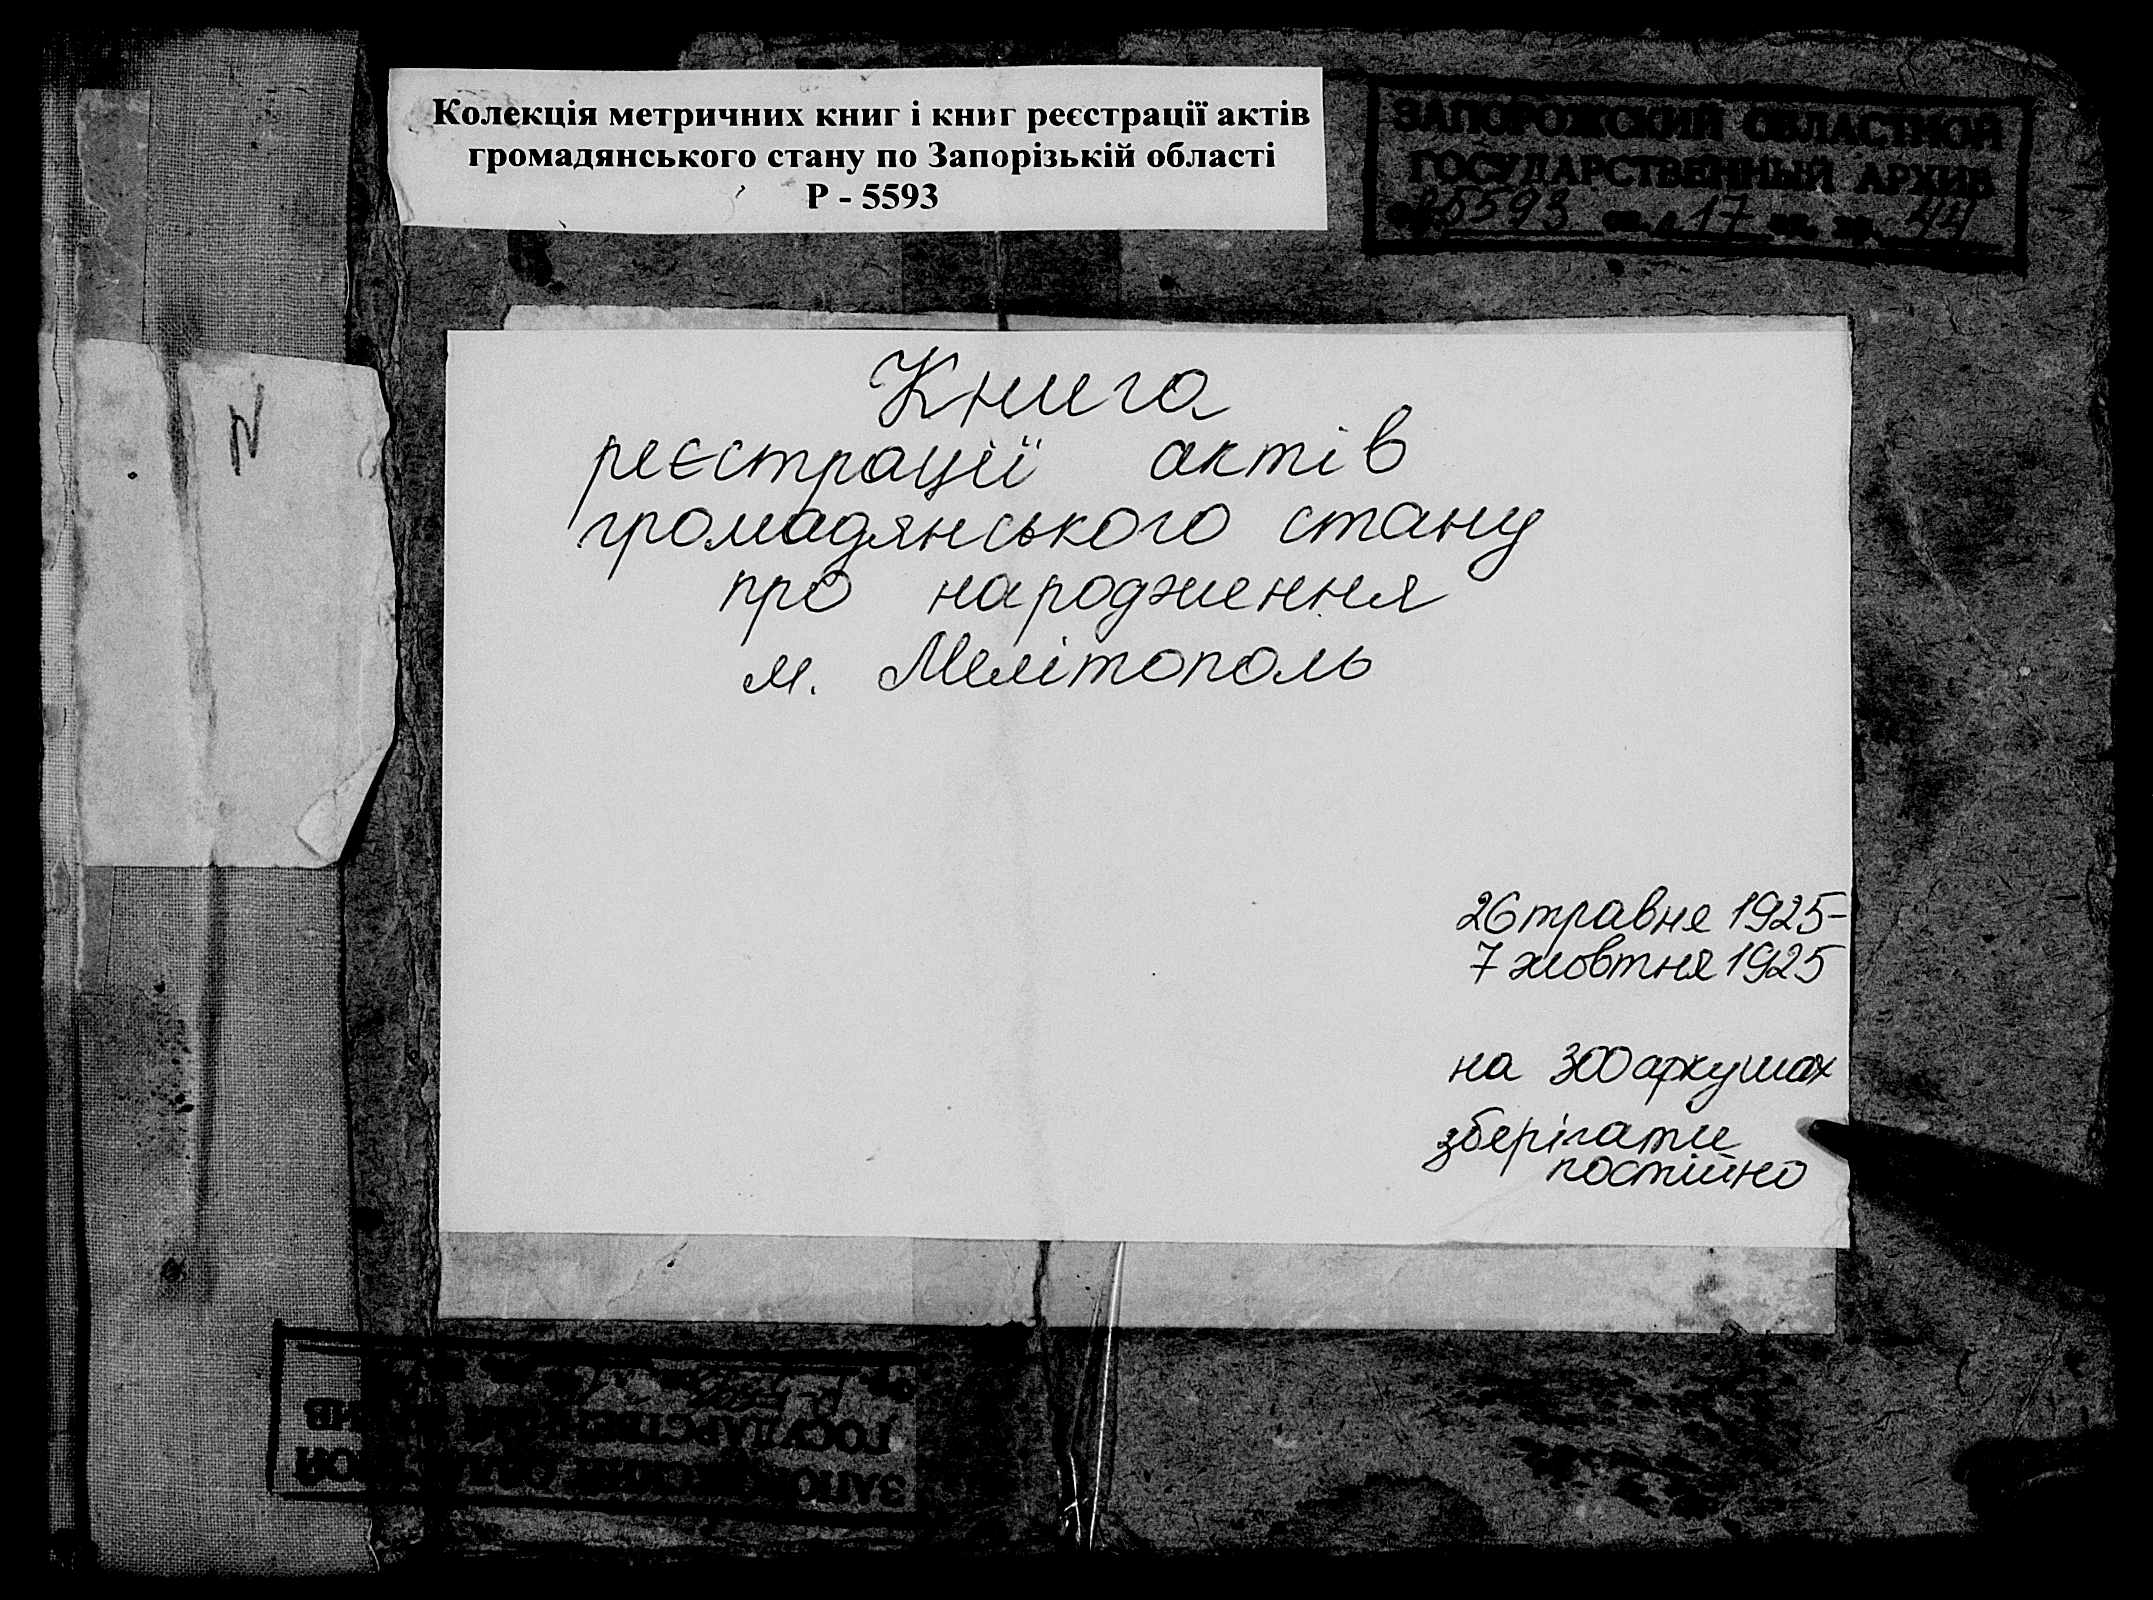 Колекція метричних книг і книг реєстрації актів
громадянського стану по Запорізькій області
Р - 5593
ЗАПОРОЖСКИЙ ОБЛАСТНОЙ
ГОСУДАРСТВЕННЫЙ АРХИВ
ф. р5593 оп. л 17 ед. хр. 44
N
Книга
реєстрації актів
громадянського стану
про народження
м. Мелітополь
26 травня 1925-
7 жовтня 1925
на 300 аркушах
зберігати
постійно
ЗАПОРОЖСКИЙ ОБЛАСТНОЙ
ГОСУДАРСТВЕННЫЙ АРХИВ